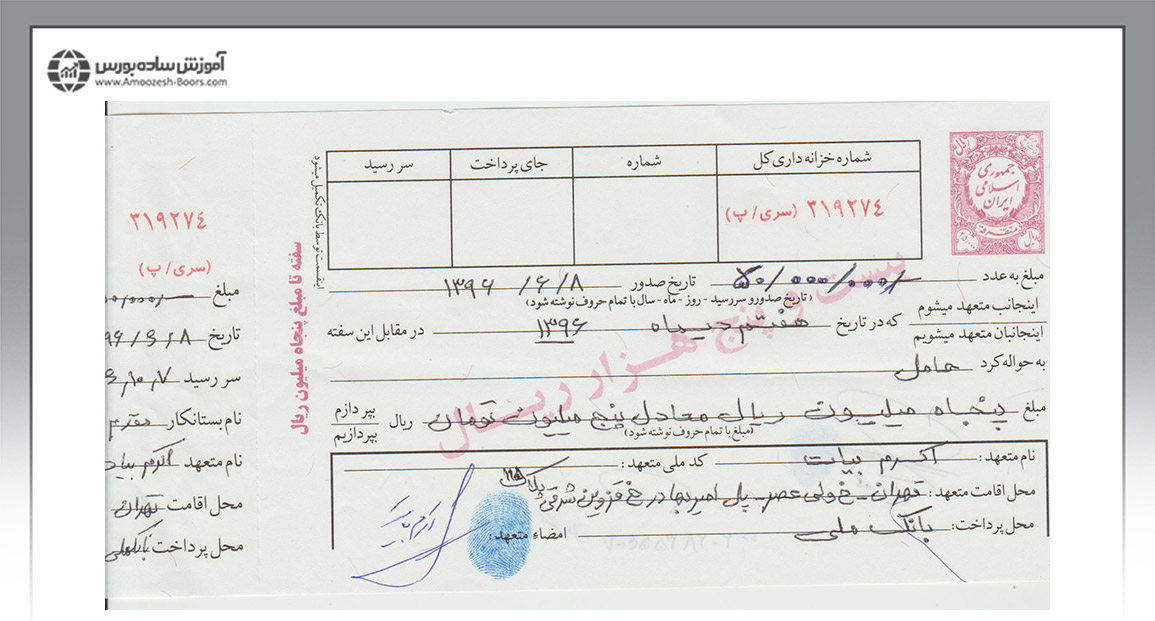 آموزش ساده بورس
www.Amoozesh-Boors.com
جمهوری
اسلامی
ایران
متفرقه
ریال
شماره خزانه داری کل
شماره
جای پرداخت
سر رسید
۳۱۹۲۷٤ (سری/پ)
اینقسمت توسط بانک تکمیل میشود
بیست و پنج هزار ریال
سفته تا مبلغ پنجاه میلیون ریال
مبلغ به عدد ۵۰/۰۰۰/۰۰۰/ تاریخ صدور ۱۳۹۶/۶/۸
(تاریخ صدور و سررسید - روز - ماه - سال با تمام حروف نوشته شود)
اینجانب متعهد میشوم
اینجانبان متعهد میشویم
که در تاریخ هفتم دیماه ۱۳۹۶ در مقابل این سفته
به حواله کرد حامل
مبلغ پنجاه میلیون ریال معادل پنج میلیون تومان ریال
بپردازم
بپردازیم
(مبلغ با تمام حروف نوشته شود)
نام متعهد: اکرم بیات کد ملی متعهد:
محل اقامت متعهد: تهران - خ ولی عصر - پل امیر بهادر خ قزوین شرقی پلاک
محل پرداخت: بانک ملی امضاء متعهد:
۳۱۹۲۷٤
(سری/پ)
مبلغ
تاریخ
سر رسید
نام بستانکار
نام متعهد اکرم
محل اقامت تهران
محل پرداخت بانک ملی